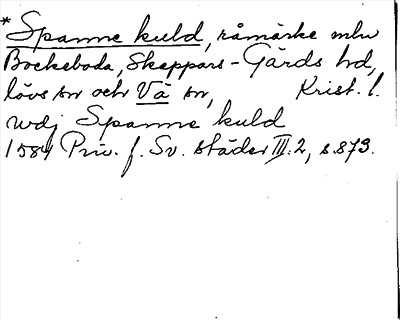 *Spanne kuld, råmärke mlw
Bockeboda, Skeppars-Gärds hd,
lövs sn och Vä sn, Krist. l.
wdj Spanne kuld
1584 Priv. f. Sv. städer III:2, s. 873.